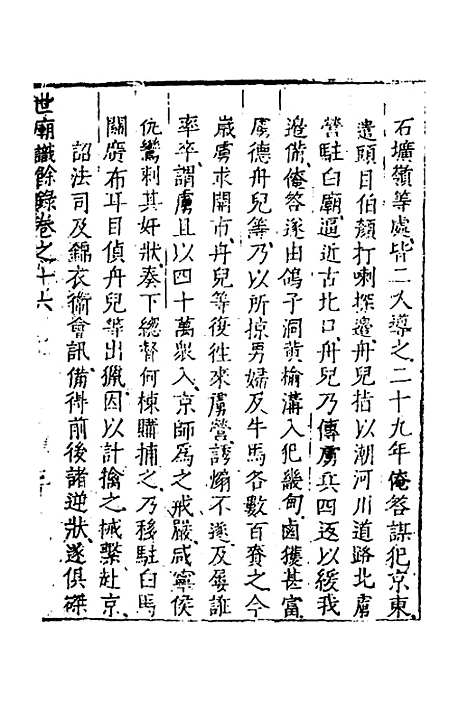 石壙嶺等處皆二人導之二十九年俺答謀犯京東
遣頭目伯顏打喇探邊舟兒指以潮河川道路北虜
營駐白廟逼近古北口舟兒乃傳虜兵四返以緩我
邊備俺答遂由鴿子洞黃榆溝入犯畿甸鹵獲甚富
虜德舟兒等乃以所掠男婦及牛馬各數百賚之今
歲虜求開市舟兒等復往來虜營誘煽不遂及屢誑
率卒謂虜且以四十萬衆入京師爲之戒嚴咸寧侯
仇鸞刺其奸狀奏下總督何棟購捕之乃移駐白馬
關廣布耳目偵舟兒等出獵因以計擒之械繫赴京
詔法司及錦衣衛會訊備得前後諸逆狀遂俱磔
世廟識餘錄卷之十六